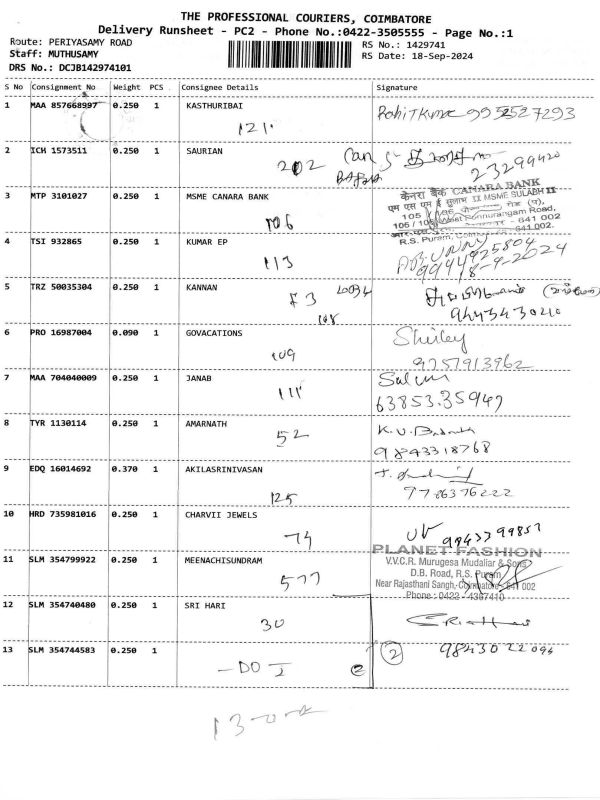 THE PROFESSIONAL COURIERS, COIMBATORE
Delivery Runsheet - PC2 - Phone No.:0422-3505555 - Page No.:1
Route: PERIYASAMY ROAD
Staff: MUTHUSAMY
DRS No.: DCJB142974101
RS No.: 1429741
RS Date: 18-Sep-2024
S No Consignment No Weight PCS Consignee Details Signature
1 MAA 857668997 0.250 1 KASTHURIBAI
121 Rohit Kumar 9952527293
2 ICH 1573511 0.250 1 SAURIAN
202
23299420
3 MTP 3101027 0.250 1 MSME CANARA BANK
106
केनरा बैंक CANARA BANK
एम एस एम ई सुलभ II MSME SULABH II
R.S. Puram,
4 TSI 932865 0.250 1 KUMAR EP
113
9944925804
18-9-2024
5 TRZ 50035304 0.250 1 KANNAN
F3
108
9443430210
6 PRO 16987004 0.090 1 GOVACATIONS
109
Shirley
9757913962
7 MAA 704040009 0.250 1 JANAB
111
Salim
63853.35947
8 TYR 1130114 0.250 1 AMARNATH
52
K.V.
9843318768
9 EDQ 16014692 0.370 1 AKILASRINIVASAN
125
7786376222
10 HRD 735981016 0.250 1 CHARVII JEWELS
74
9943799857
11 SLM 354799922 0.250 1 MEENACHISUNDRAM
577
PLANET FASHION
V.V.C.R. Murugesa Mudaliar & Sons
D.B. Road, R.S. Puram
Near Rajasthani Sangh, Coimbatore - 641 002
Phone : 0422 - 4367410
12 SLM 354740480 0.250 1 SRI HARI
30
13 SLM 354744583 0.250 1
- DO I
2
2
9843022094